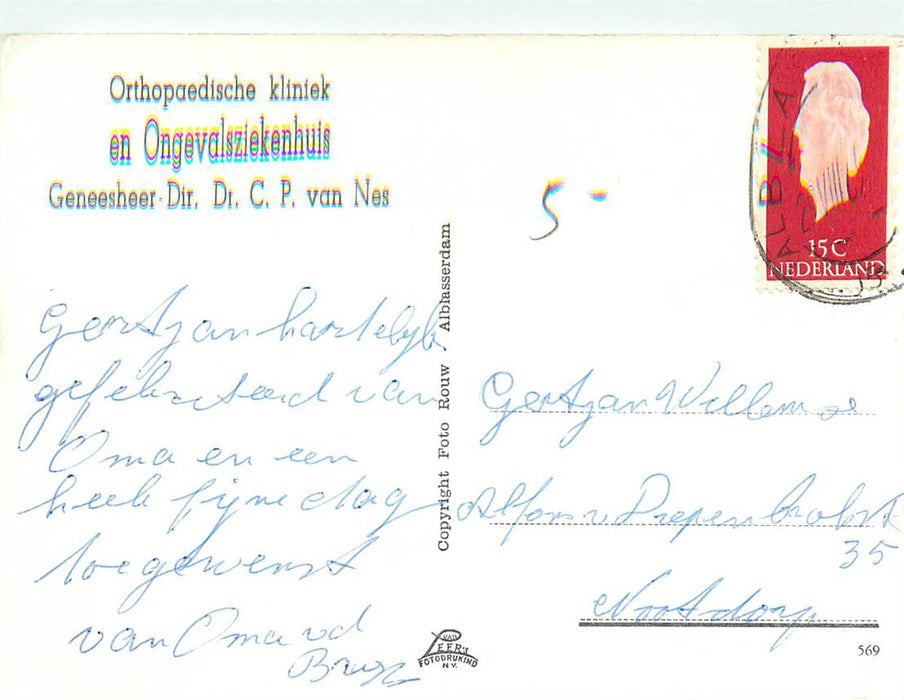 Orthopaedische kliniek
en Ongevalsziekenhuis
Geneesheer-Dir. Dr. C. P. van Nes
5-
15C
NEDERLAND
ALBLA
Gertjan hartelijk
gefeliciteerd van
Oma en een
hele fijne dag
toegewenst
van Oma vd
Copyright Foto Rouw, Alblasserdam
Gertjan Willemse
Alfons v Diepenbrockst
35
Nootdorp
VAN
LEER's
FOTODRUKIND
N.V.
569